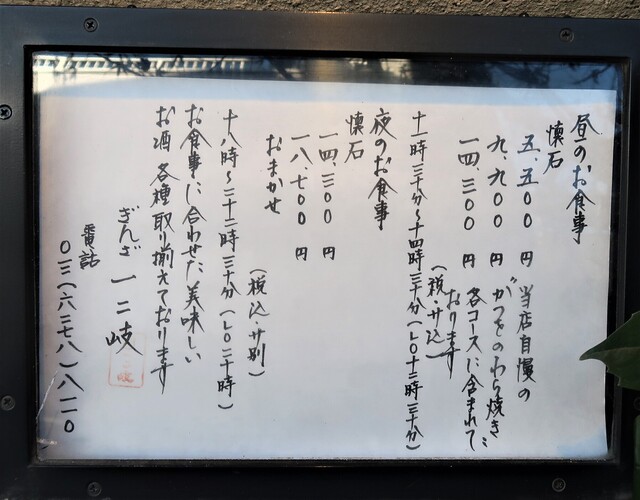 昼のお食事
懐石
五、五〇〇 円 当店自慢の
九、九〇〇 円 がつをのわら焼き
一四、三〇〇 円 各コースに含まれて
おります
(税・サ込)
十一時三十分〜十四時三十分(LO十三時三十分)
夜のお食事
懐石
一四、三〇〇 円
一八、七〇〇 円
おまかせ
(税込・サ別)
十八時〜二十二時三十分(LO二十時)
お食事に合わせた美味しい
お酒 各種取り揃えております
ぎんざ 一二岐
電話
〇三(六二七八)八一一〇